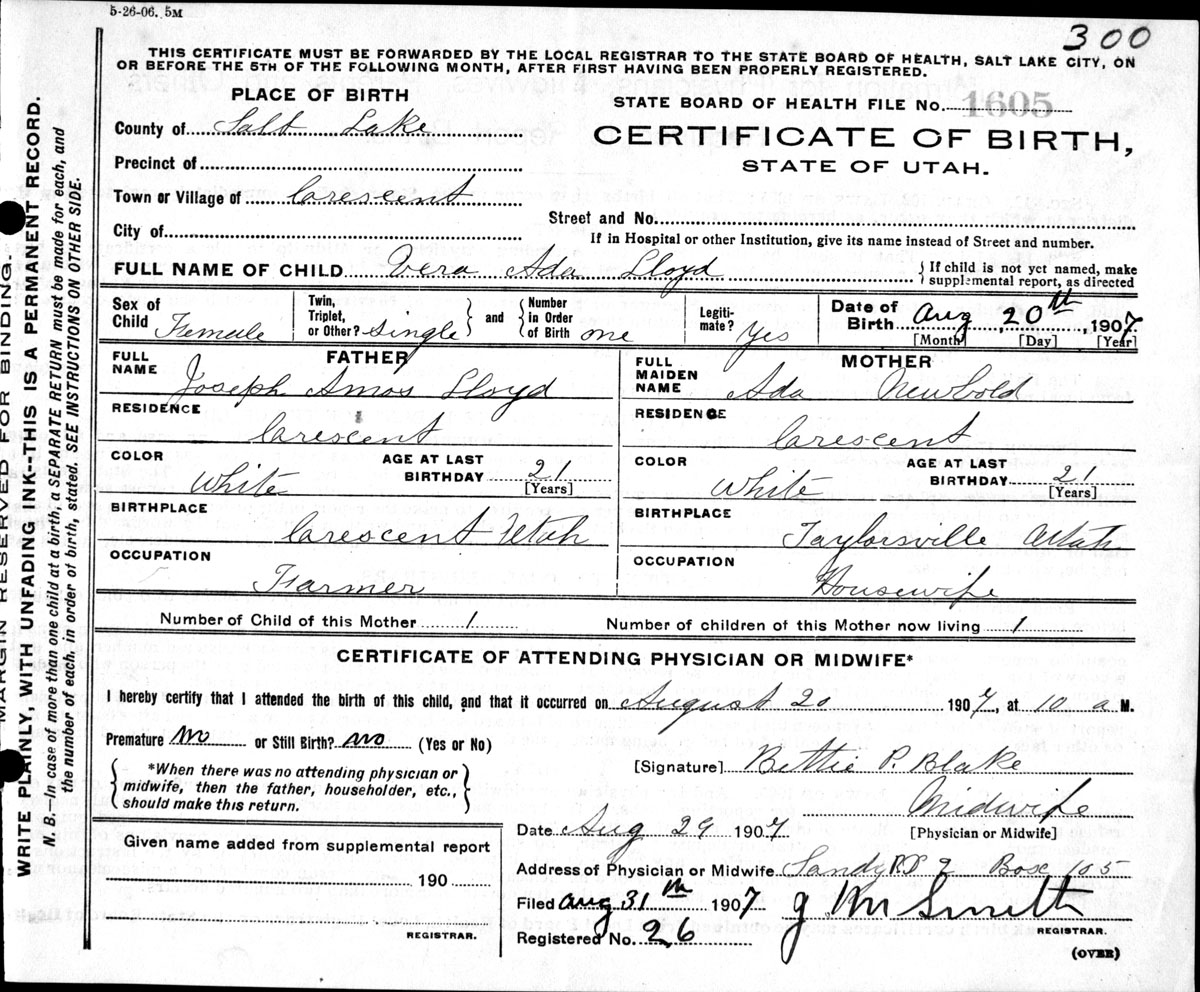 5-26-06. 5M
300
THIS CERTIFICATE MUST BE FORWARDED BY THE LOCAL REGISTRAR TO THE STATE BOARD OF HEALTH, SALT LAKE CITY, ON
OR BEFORE THE 5TH OF THE FOLLOWING MONTH, AFTER FIRST HAVING BEEN PROPERLY REGISTERED.
PLACE OF BIRTH
STATE BOARD OF HEALTH FILE No. 1605
County of Salt Lake
CERTIFICATE OF BIRTH,
STATE OF UTAH.
Precinct of
Town or Village of Crescent
Street and No.
City of
If in Hospital or other Institution, give its name instead of Street and number.
FULL NAME OF CHILD Vera Ada Lloyd
{ If child is not yet named, make
supplemental report, as directed
Sex of Child Female
Twin, Triplet, or Other? Single } and { Number in Order of Birth one
Legitimate? Yes
Date of Birth Aug 20th, 1907
[Month] [Day] [Year]
FATHER
FULL NAME Joseph Amos Lloyd
RESIDENCE Crescent
COLOR White
AGE AT LAST BIRTHDAY 21
[Years]
BIRTHPLACE Crescent Utah
OCCUPATION Farmer
MOTHER
FULL MAIDEN NAME Ada Newbold
RESIDENCE Crescent
COLOR White
AGE AT LAST BIRTHDAY 21
[Years]
BIRTHPLACE Taylorsville Utah
OCCUPATION Housewife
Number of Child of this Mother 1
Number of children of this Mother now living 1
CERTIFICATE OF ATTENDING PHYSICIAN OR MIDWIFE*
I hereby certify that I attended the birth of this child, and that it occurred on August 20 1907, at 10 a M.
Premature no or Still Birth? no (Yes or No)
{ *When there was no attending physician or
midwife, then the father, householder, etc.,
should make this return. }
[Signature] Bettie P. Blake
Midwife
[Physician or Midwife]
Date Aug 29 1907
Given name added from supplemental report
190
REGISTRAR.
Address of Physician or Midwife Sandy Box 105
Filed Aug 31th 1907 J M Smith
REGISTRAR.
Registered No. 26
(OVER)
MARGIN RESERVED FOR BINDING.
WRITE PLAINLY, WITH UNFADING INK--THIS IS A PERMANENT RECORD.
N. B.—In case of more than one child at a birth, a SEPARATE RETURN must be made for each, and
the number of each, in order of birth, stated. SEE INSTRUCTIONS ON OTHER SIDE.